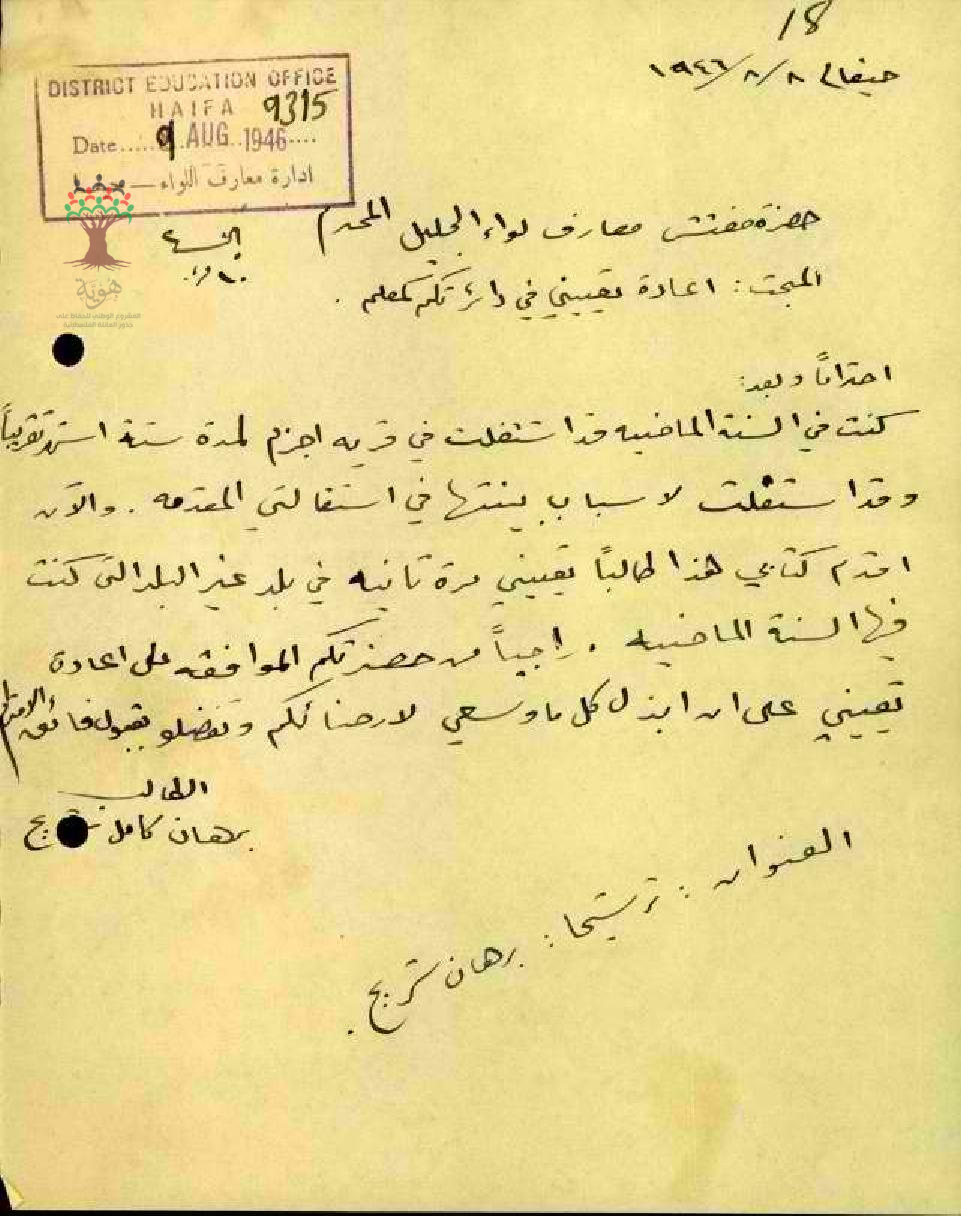 18
حيفا في ٨/٨/١٩٤٦
DISTRICT EDUCATION OFFICE
HAIFA 9315
Date..... 9 AUG..1946....
ادارة معارف اللواء — حيفا
حضرة مفتش معارف لواء الجليل المحترم
المبحث : اعادة تعييني في دائرتكم كمعلم .
هوية
المشروع الوطني للحفاظ على
جذور العائلة الفلسطينية
احتراماً وبعد :
كنت في السنة الماضيه قد اشتغلت في قريه اجزم لمدة ستة اشهر تقريباً
وقد استقلت لاسباب بينتها في استقالتي المقدمه . والآن
اقدم كتابي هذا طالباً تعييني مرة ثانيه في بلد غير البلد التي كنت
فيها السنة الماضيه . راجياً من حضرتكم الموافقه على اعادة
تعييني على ان ابذل كل ما وسعي لارضائكم وتفضلو بقبول فائق الاحترام
الطالب
برهان كامل
العنوان : ترشيحا : برهان شريح .